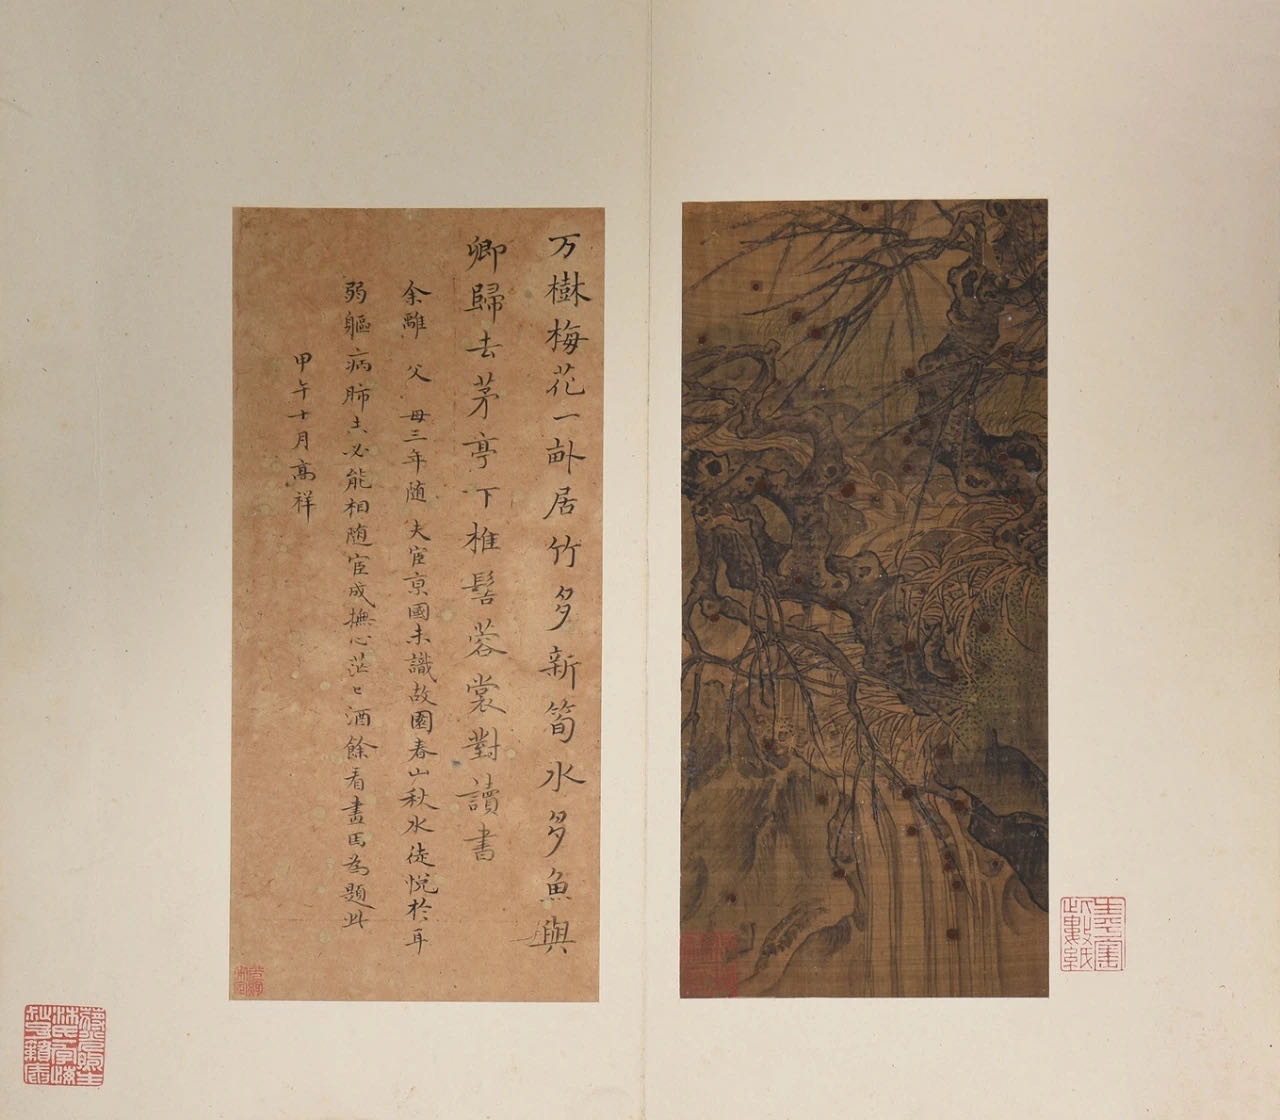 万樹梅花一畝居竹多新筍水多魚與
卿歸去茅亭下椎髻蓉裳對讀書
余離父母三年随夫宦京國未識故園春山秋水徒悅於耳
弱軀病肺未必能相随宦成撫心茫〻酒餘看畫因為題此
甲午十月高祥